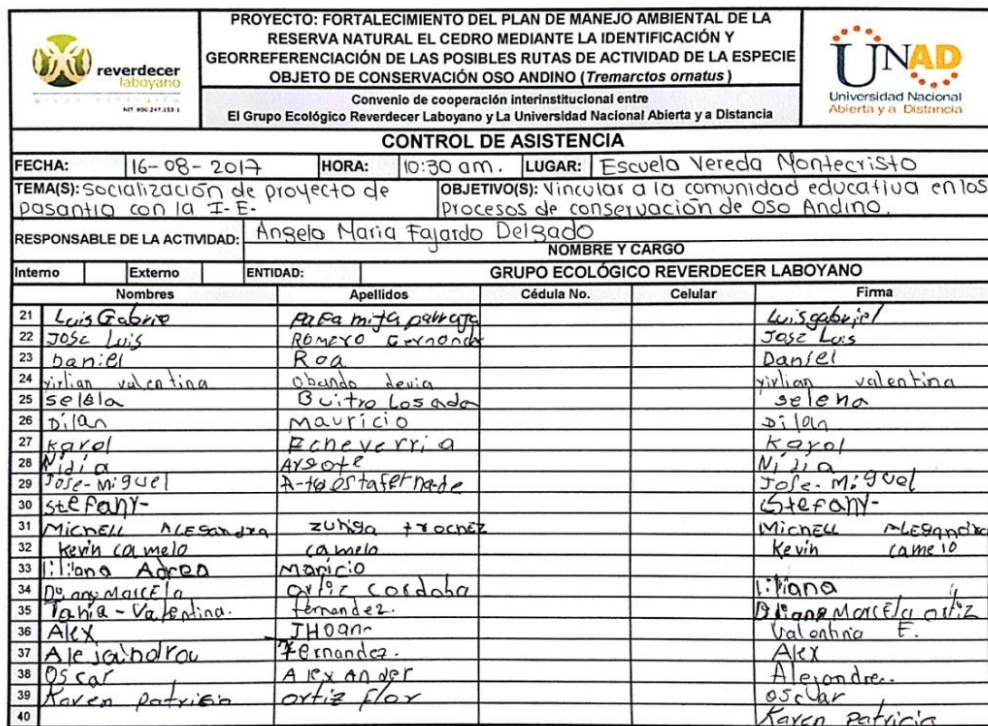 reverdecer
laboyano
PROYECTO: FORTALECIMIENTO DEL PLAN DE MANEJO AMBIENTAL DE LA
RESERVA NATURAL EL CEDRO MEDIANTE LA IDENTIFICACIÓN Y
GEORREFERENCIACIÓN DE LAS POSIBLES RUTAS DE ACTIVIDAD DE LA ESPECIE
OBJETO DE CONSERVACIÓN OSO ANDINO (Tremarctos ornatus)
Convenio de cooperación interinstitucional entre
El Grupo Ecológico Reverdecer Laboyano y La Universidad Nacional Abierta y a Distancia
UNAD
Universidad Nacional
Abierta y a Distancia
CONTROL DE ASISTENCIA
FECHA: 16-08-2017 HORA: 10:30 am. LUGAR: Escuela Vereda Montecristo
TEMA(S): Socialización de proyecto de
pasantia con la I-E-
OBJETIVO(S): Vincular a la comunidad educativa en los
Procesos de conservación de Oso Andino.
RESPONSABLE DE LA ACTIVIDAD: Angela Maria Fajardo Delgado
NOMBRE Y CARGO
Interno Externo ENTIDAD: GRUPO ECOLÓGICO REVERDECER LABOYANO
Nombres Apellidos Cédula No. Celular Firma
21 Luis Gabrie Luisgabriel
22 Jose Luis Romero Jose Luis
23 Daniel Roa Daniel
24 yirlian valentina obando devia yirlian valentina
25 Buitro Losada selena
26 Dilan mauricio Dilan
27 Karol Echeverria Karol
28 Nidia Argote Nidia
29 Jose-Miguel Jose-Miguel
30 stefany- Stefany-
31 Michell ALEsandra zuñiga trochez Michell ALEsandra
32 Kevin camelo camelo Kevin camelo
33 liliana Adrea maricio
34 Marcela ortiz cordoba liliana
35 Tania-Valentina. fernandez. Marcela ortiz
36 Alex JHoan Valentina F.
37 Fernandez. Alex
38 Oscar Alexander Alejandro.
39 Karen Patricia ortiz flor
40 Karen Patricia